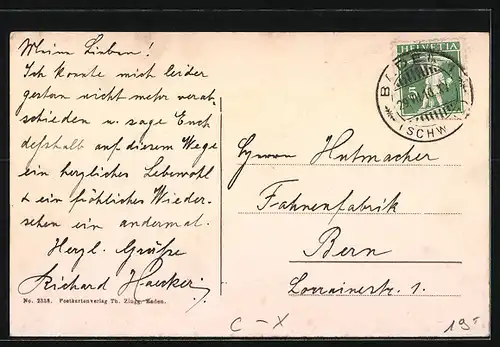 Meine Lieben!
Ich konnte mich leider
gestern nicht mehr verab-
schieden u. sage Euch
deßhalb auf diesem Wege
ein herzliches Lebewohl
& ein fröhliches Wieder-
sehen ein andermal.
Herzl. Grüße
Richard
No. 2358. Postkartenverlag Th. Zingg, Baden.
HELVETIA
5
(SCHW
Hutmacher
Fahnenfabrik
Bern
Lorrainestr. 1.
C – X
19